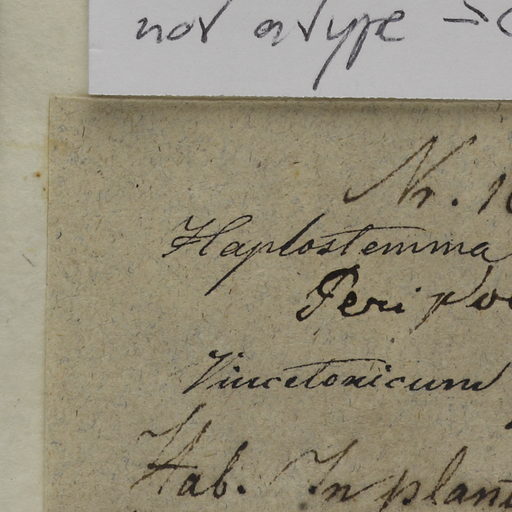 not a type
Nr. 1
Haplostemma
Peri
Vincetoxicum
Hab. In plan